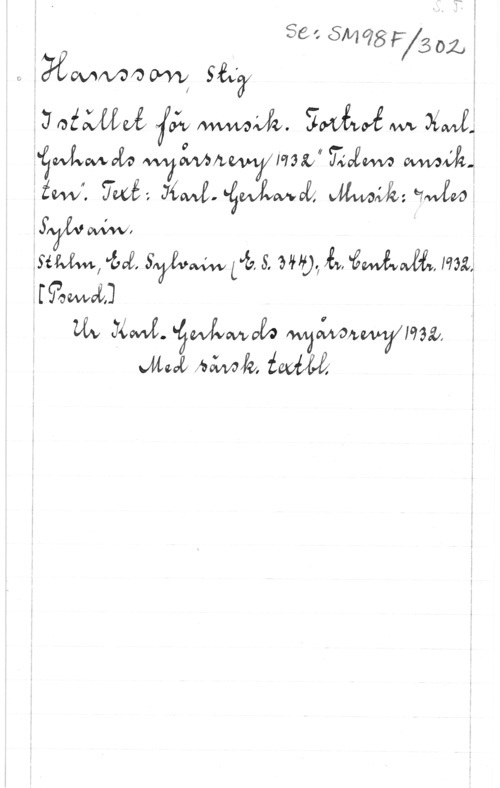 S. T.
Se: SM98F/302
Hansson, Stig
I stället för musik. Foxtrot ur Karl-
Gerhards nyårsrevy 1932 "Tidens ansik-
ten". Text: Karl-Gerhard. Musik: Jules
Sylvain.
Sthlm, Ed. Sylvain (E. S. 344); tr. Centraltr. 1932.
[Pseud.]
Ur Karl-Gerhards nyårsrevy 1932.
Med särsk. textbl.